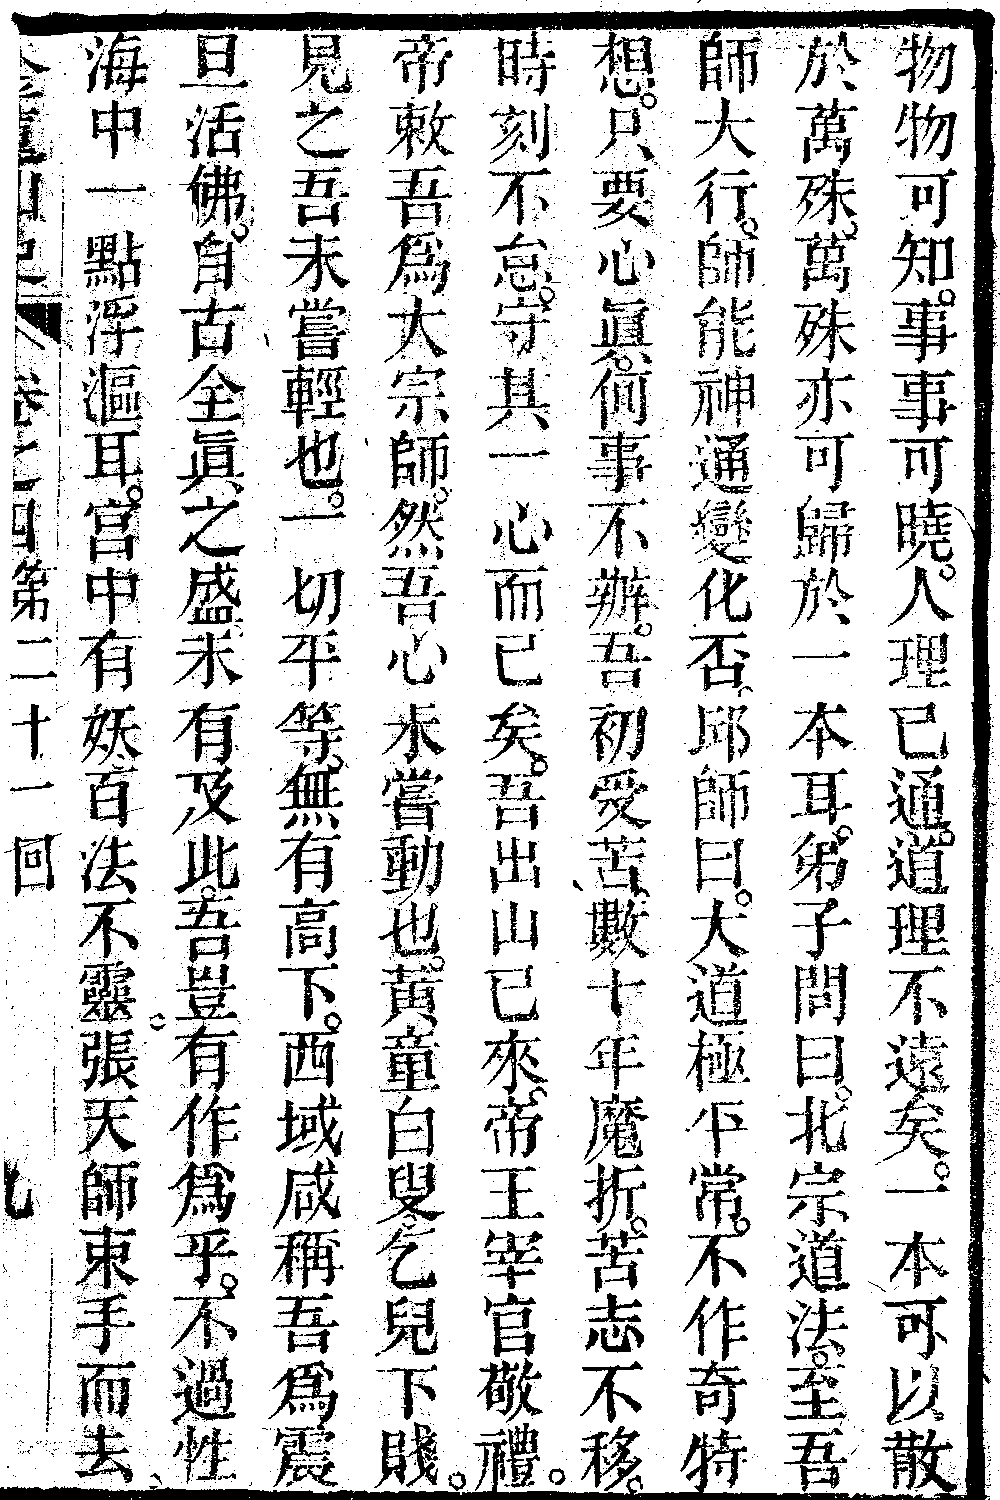 物物可知。事事可曉。人理已通。道理不遠矣。一本可以散
於萬殊。萬殊亦可歸於一本耳。弟子問曰。北宗道法。至吾
師大行。師能神通變化否。邱師曰。大道極平常。不作奇特
想。只要心眞。何事不辦。吾初受苦。數十年魔折。苦志不移。
時刻不怠。守其一心而已矣。吾出山已來。帝王宰官敬禮。
帝敕吾爲大宗師。然吾心未嘗動也。黃童白叟。乞兒下賤。
見之吾未嘗輕也。一切平等。無有高下。西域咸稱吾爲震
旦活佛。自古全眞之盛。未有及此。吾豈有作爲乎。不過性
海中一點浮漚耳。宮中有妖。百法不靈。張天師束手而去。
卷之四第二十一回 九